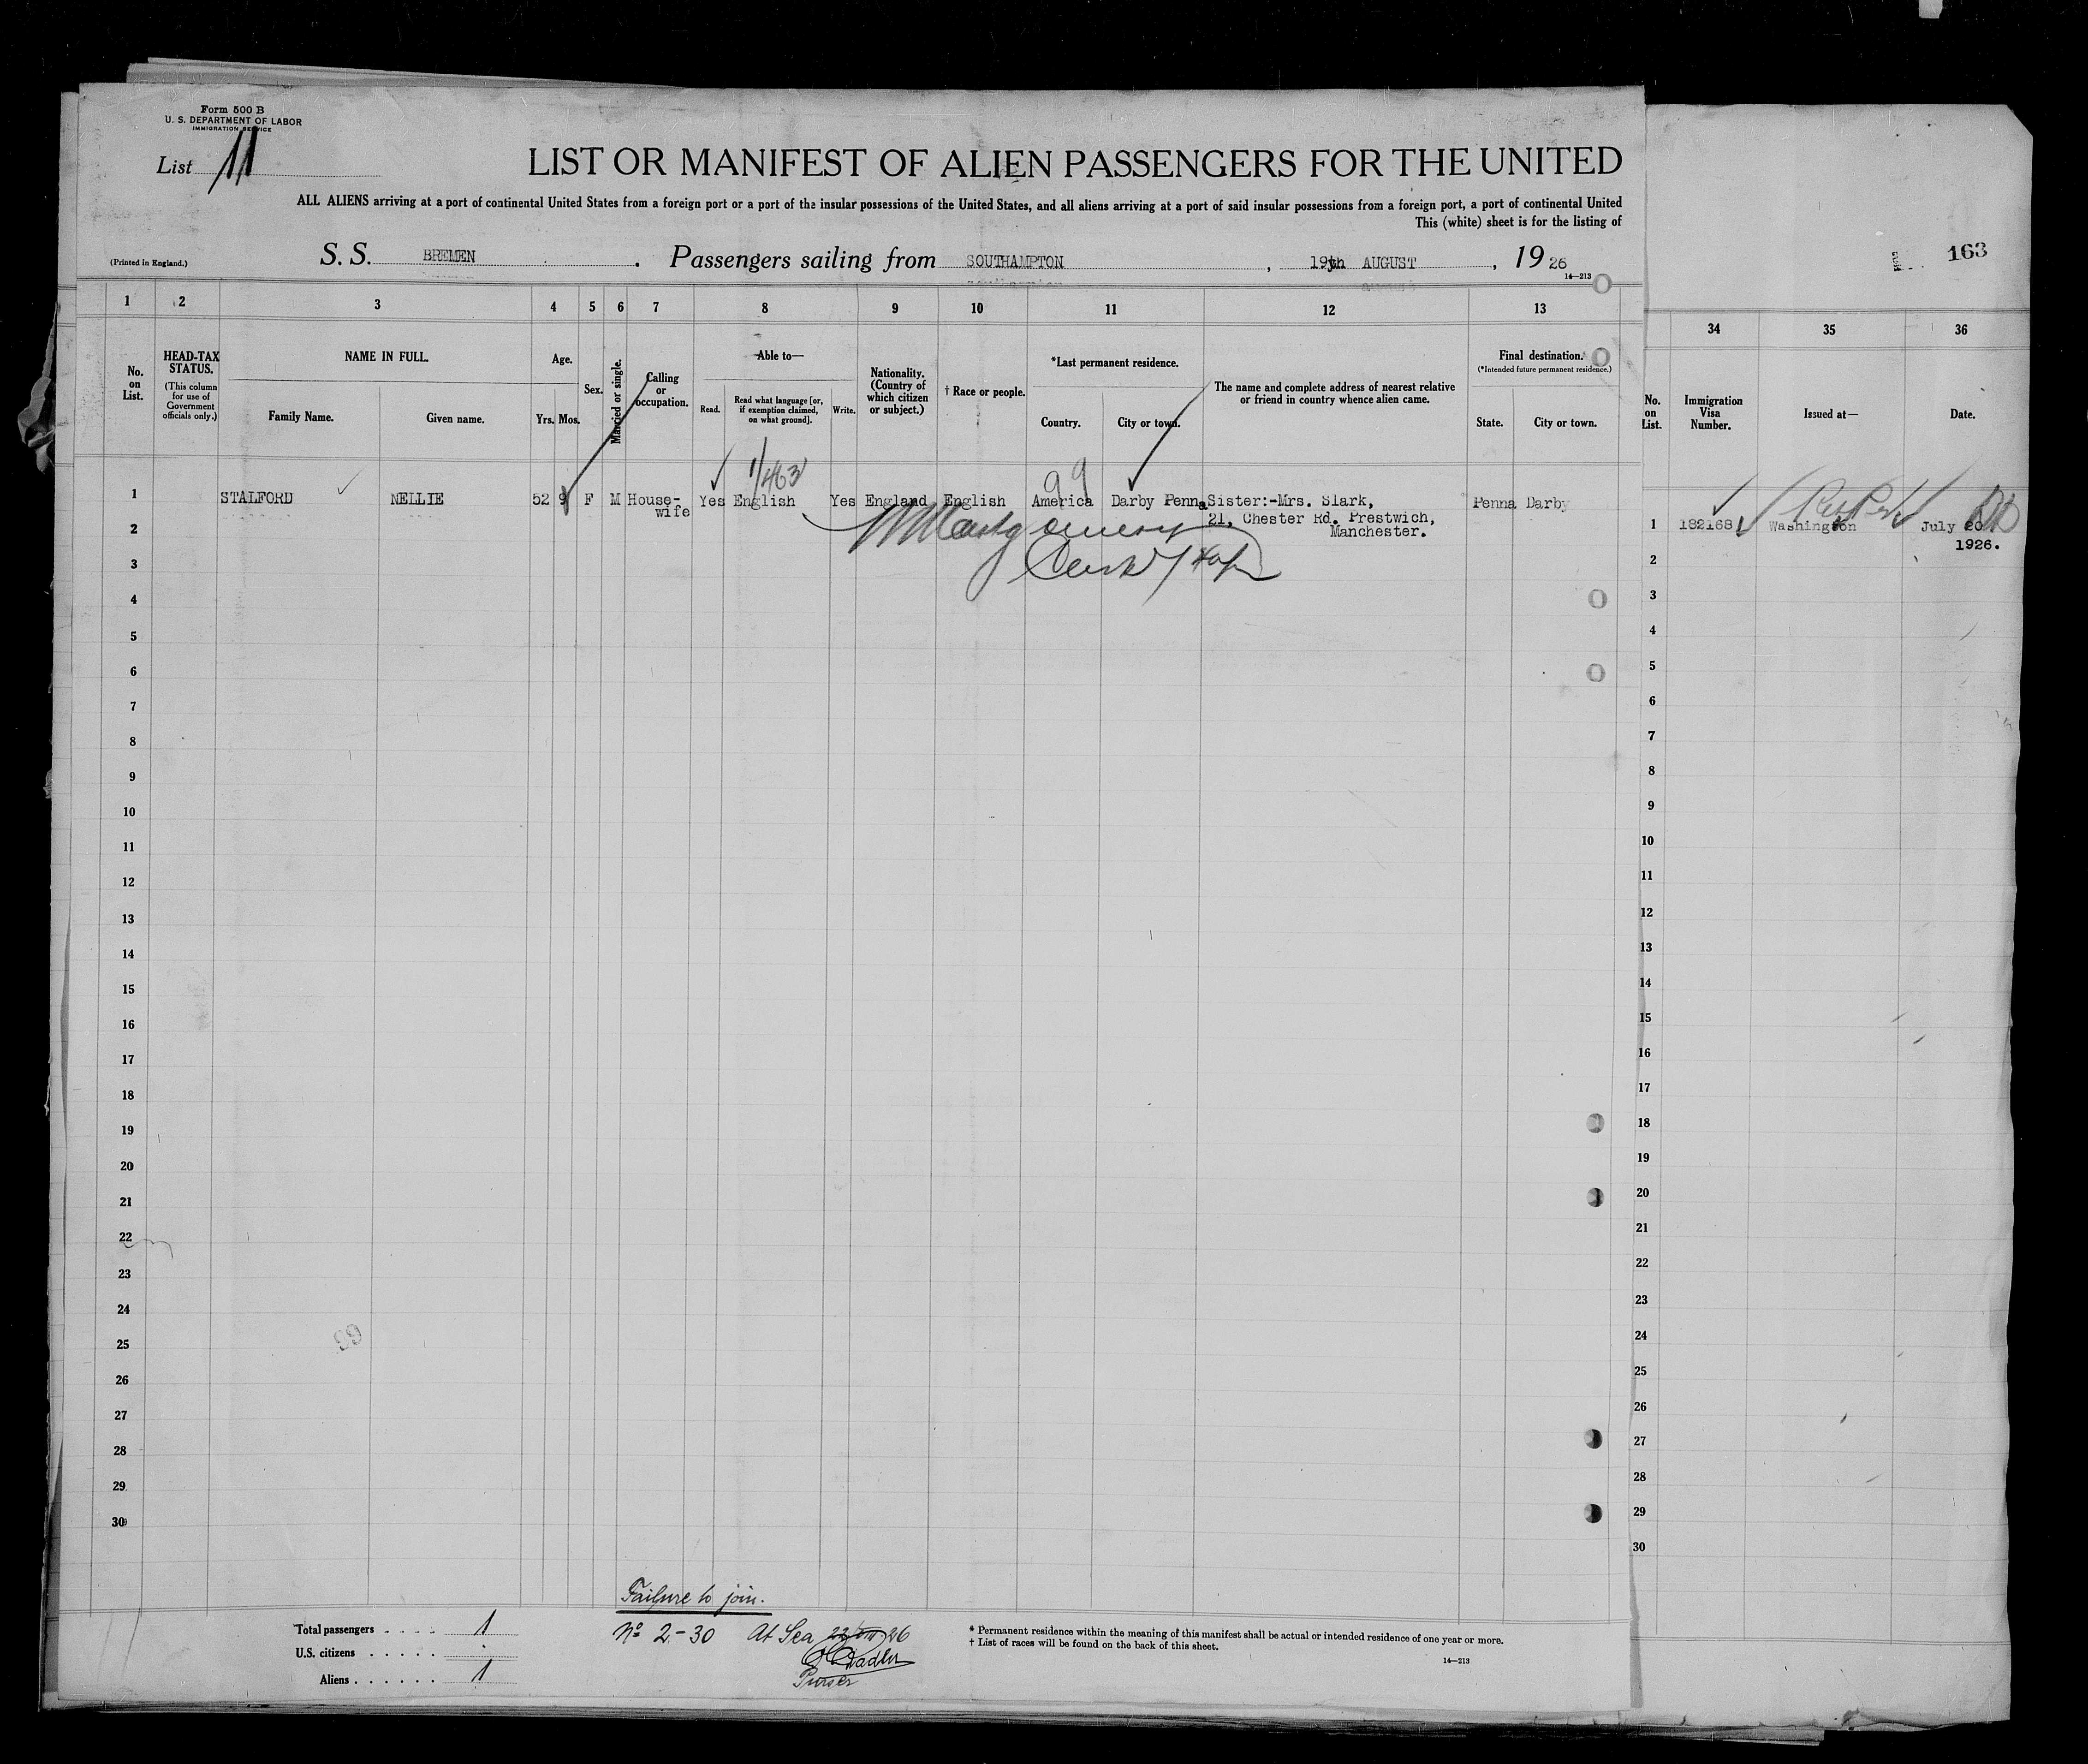 Form 500 B
U. S. DEPARTMENT OF LABOR
IMMIGRATION SERVICE
List 11
LIST OR MANIFEST OF ALIEN PASSENGERS FOR THE UNITED
ALL ALIENS arriving at a port of continental United States from a foreign port or a port of the insular possessions of the United States, and all aliens arriving at a port of said insular possessions from a foreign port, a port of continental United
This (white) sheet is for the listing of
(Printed in England.) S. S. BREMEN . Passengers sailing from SOUTHAMPTON , 19th AUGUST , 19 26
14—213
163
1 2 3 4 5 6 7 8 9 10 11 12 13
34 35 36
No. on List.
HEAD-TAX STATUS.
(This column for use of Government officials only.)
NAME IN FULL.
Family Name. Given name.
Age.
Yrs. Mos.
Sex.
Married or single.
Calling or occupation.
Able to—
Read. Read what language [or, if exemption claimed, on what ground]. Write.
Nationality. (Country of which citizen or subject.)
† Race or people.
*Last permanent residence.
Country. City or town.
The name and complete address of nearest relative or friend in country whence alien came.
Final destination.
(*Intended future permanent residence.)
State. City or town.
No. on List.
Immigration Visa Number.
Issued at—
Date.
1/463
99
1 STALFORD NELLIE 52 9 F M House- Yes English Yes England English America Darby Penna Sister:-Mrs. Slark, Penna Darby
wife 21, Chester Rd. Prestwich,
Manchester.
1 182168 Washington July 20
1926.
2
3
4
5
6
7
8
9
10
11
12
13
14
15
16
17
18
19
20
21
22
23
24
25
26
27
28
29
30
2
3
4
5
6
7
8
9
10
11
12
13
14
15
16
17
18
19
20
21
22
23
24
25
26
27
28
29
30
63
Failure to join.
No 2-30 At Sea 22/VIII 26
Purser
Total passengers . . . . 1
U.S. citizens . . . . .
Aliens . . . . . . 1
* Permanent residence within the meaning of this manifest shall be actual or intended residence of one year or more.
† List of races will be found on the back of this sheet.
14—213